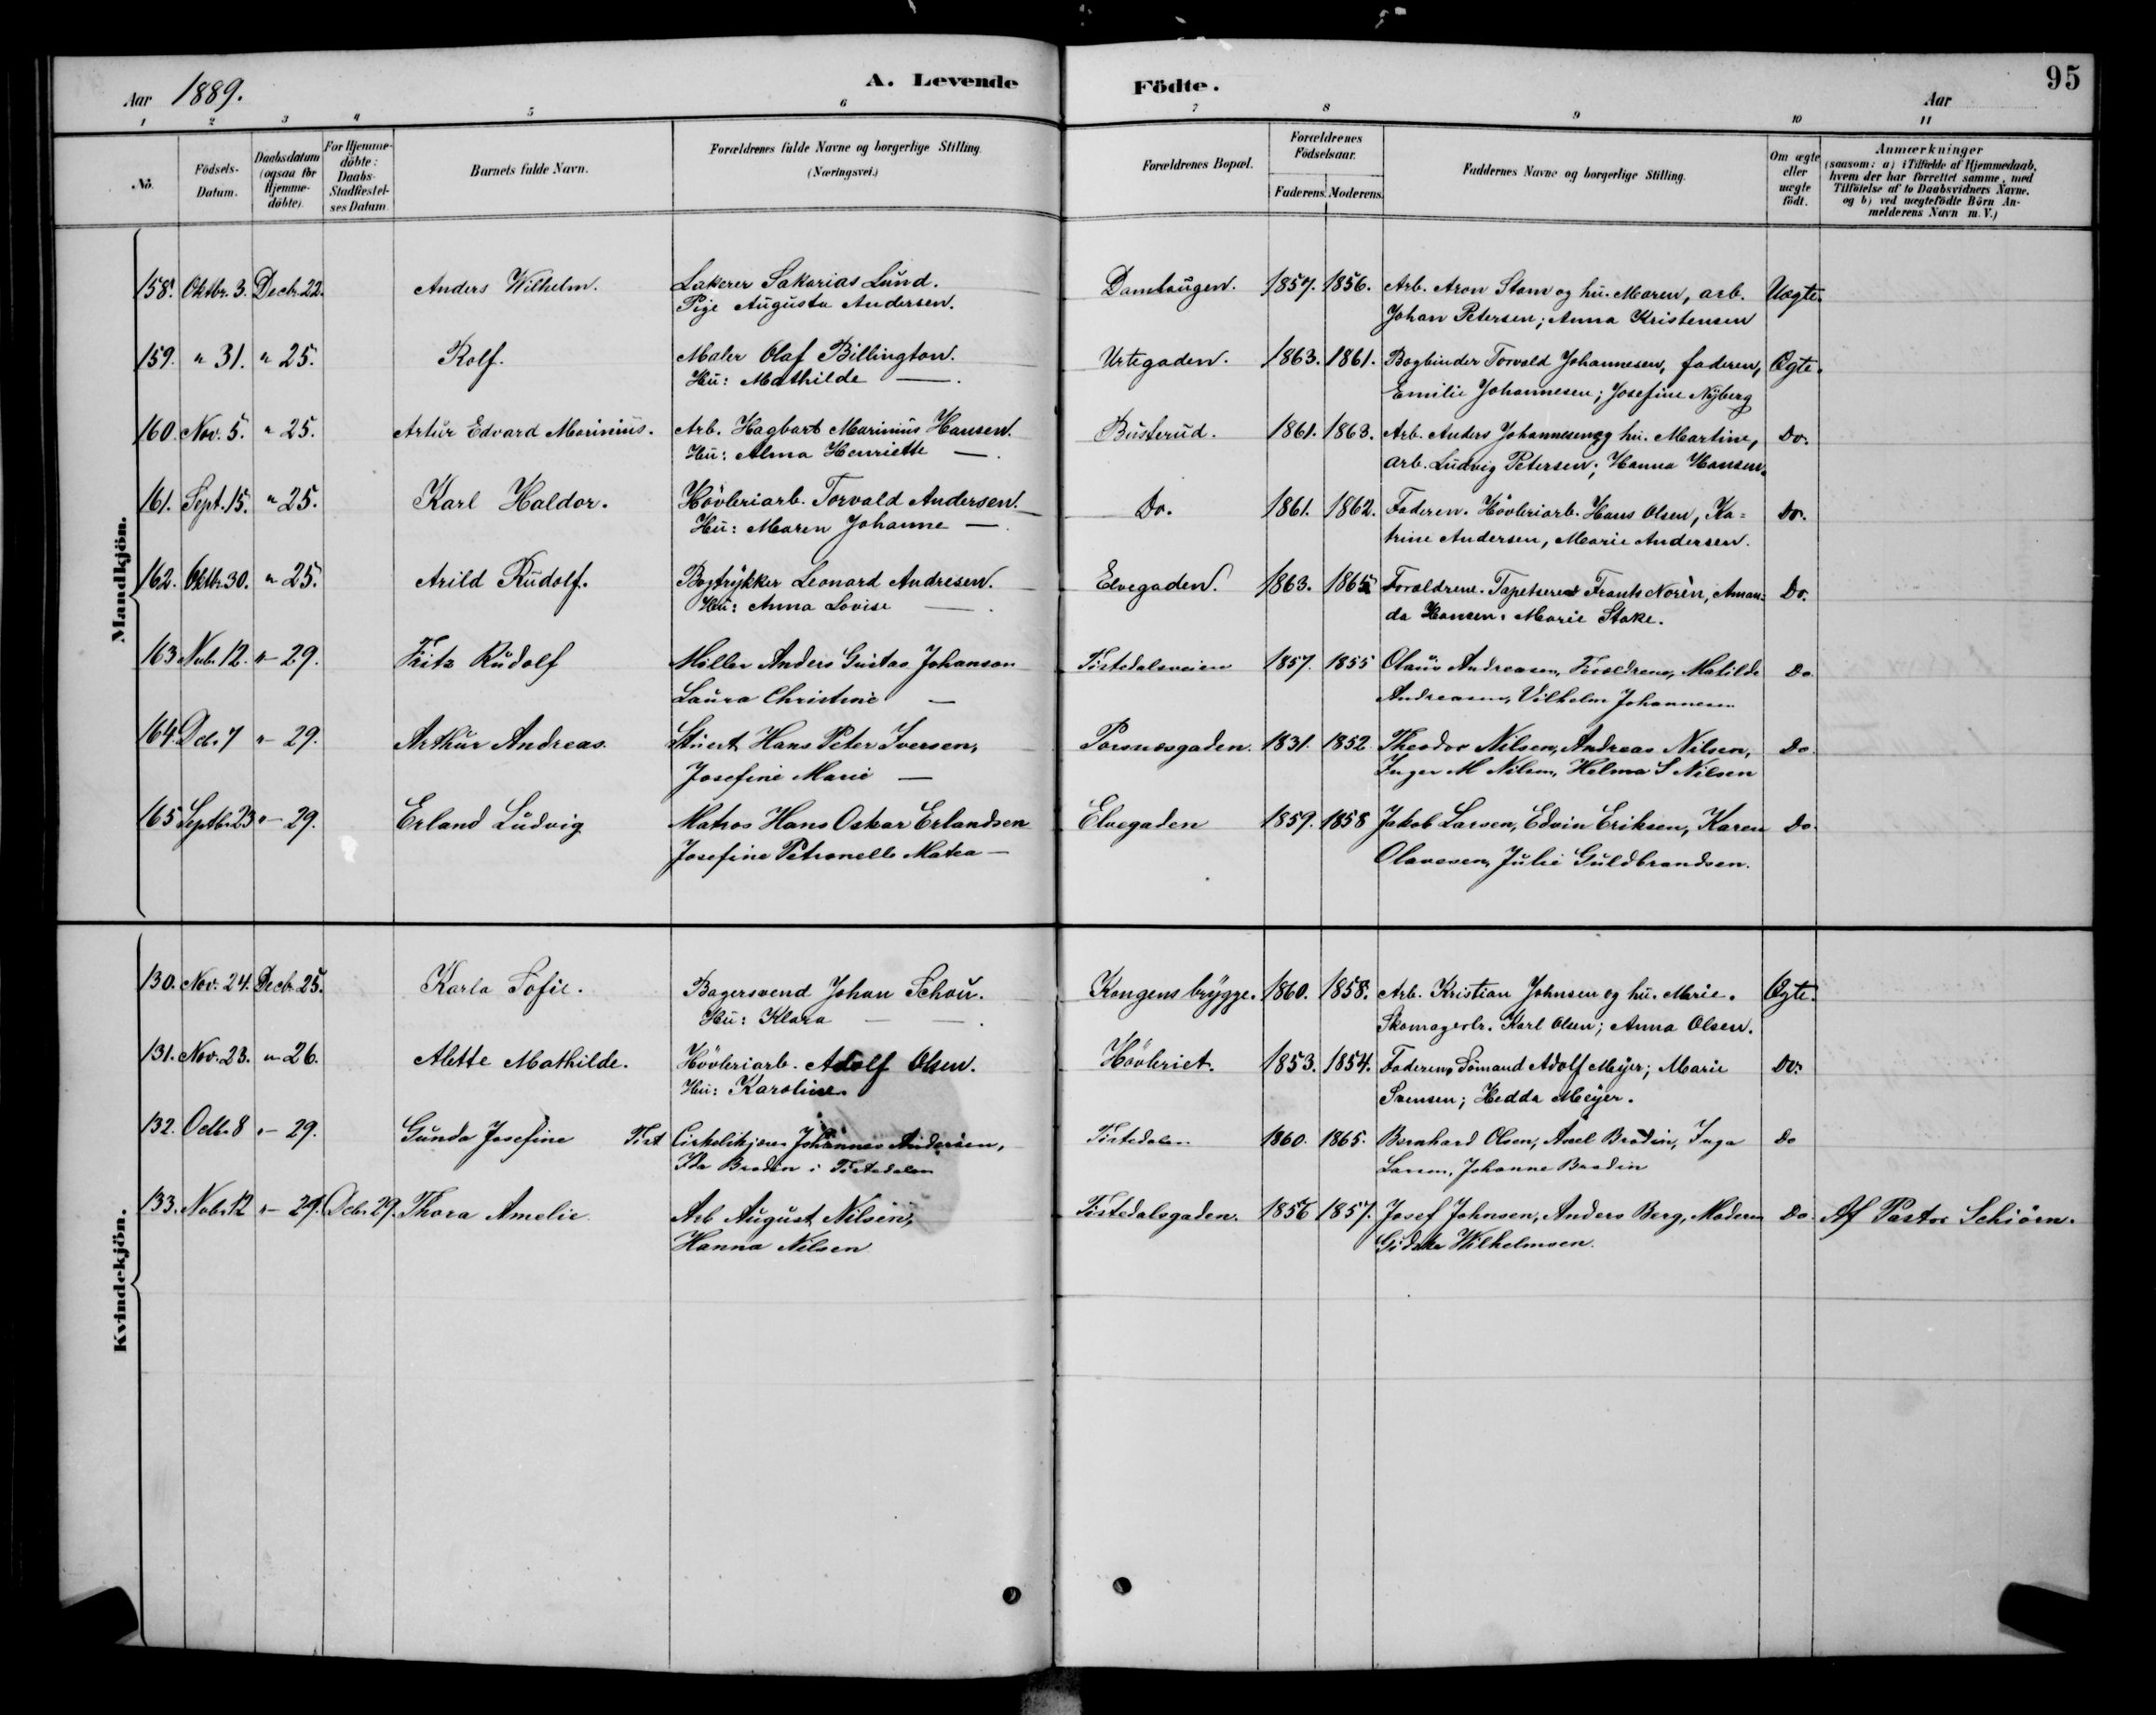 95
Aar 1889.
A. Levende Födte.
Aar
1 2 3 4 5 6 7 8 9 10 11
No.
Födsels-Datum.
Daabsdatum (ogsaa for Hjemme-döbte).
For Hjemme-döbte: Daabs-Stadfæstel-ses Datum.
Barnets fulde Navn.
Forældrenes fulde Navne og borgerlige Stilling. (Næringsvei.)
Forældrenes Bopæl.
Forældrenes Födselsaar.
Faderens. Moderens.
Faddernes Navne og borgerlige Stilling.
Om ægte eller uægte födt.
Anmærkninger (saasom: a) i Tilfælde af Hjemmedaab, hvem der har forrettet samme, med Tilföielse af to Daabsvidners Navne, og b) ved uægtefödte Börn An-melderens Navn m. V.)
Mandkjön.
158. Oktbr. 3. Decb. 22. Anders Wilhelm. Lakerer Sakarias Lund. Damhaugen. 1857. 1856. Arb. Aron Stam og hu. Maren, arb. Uægte.
Pige Augusta Andersen. Johan Petersen; Anna Kristensen
159. " 31. " 25. Rolf. Maler Olaf Billington. Urtegaden. 1863. 1861. Bogbinder Torvald Johannesen, faderen, Ægte.
Hu: Mathilde —. Emilie Johannesen; Josefine Nyberg
160. Nov. 5. " 25. Artur Edvard Marinius. Arb. Hagbart Marinius Hansen. Busterud. 1861. 1863. Arb. Anders Johannesen og hu. Martine, Do.
Hu: Alma Henriette —. arb. Ludvig Petersen; Hanna Hansen.
161. Sept. 15. " 25. Karl Haldor. Hövleriarb. Torvald Andersen. Do. 1861. 1862. Faderen. Hövleriarb. Hans Olsen, Ka- Do.
Hu: Maren Johanne —. trine Andersen, Marie Andersen.
162. Oktbr. 30. " 25. Arild Rudolf. Bogtrykker Leonard Andresen. Elvegaden. 1863. 1865 Forældrene. Tapetserer Frants Norèn, Aman- Do.
Hu: Anna Lovise —. da Hansen. Marie Stake.
163 Novb. 12. "- 29. Fritz Rudolf Möller Anders Gustav Johanson Tistedalsveien 1857. 1855 Olaus Andreasen, Forældrene, Matilde Do.
Laura Christine — Andreasen, Vilhelm Johannesen
164. Dcb. 7 "- 29. Arthur Andreas. Stuert Hans Peter Iversen, Porsnesgaden. 1831. 1852. Theodor Nilsen, Andreas Nilsen, Do.
Josefine Marie — Inger M Nilsen, Helma S Nilsen
165 Septbr. 23 "- 29. Erland Ludvig Matros Hans Oskar Erlandsen Elvegaden 1859. 1858 Jakob Larsen, Edvin Eriksen, Karen Do.
Josefine Petronelle Matea — Olavesen, Julie Guldbrandsen.
Kvindekjön.
130. Nov. 24. Decb. 25. Karla Sofie. Bagersvend Johan Schou. Kongens brygge. 1860. 1858. Arb. Kristian Johnsen og hu. Marie. Ægte.
Hu: Klara — —. Skomagerlr. Karl Olsen; Anna Olsen.
131. Nov. 23. "- 26. Alette Mathilde. Hövleriarb. Adolf Olsen. Hövleriet. 1853. 1854. Faderen, Sömand Adolf Meyer; Marie Do.
Hu: Karoline. Svensen; Hedda Meyer.
132. Octb. 8 "- 29. Gunda Josefine Tist Johannes Andersen, Tistedalen 1860. 1865. Bernhard Olsen, Axel Brodin, Inga Do
Ida Brodin i Tistedalen Larsen, Johanne Brodin
133. Novbr. 12 "- 29. Dcbr. 29. Thora Amelie. Arb August Nilsen, Tistedalsgaden. 1856 1857. Josef Johnsen, Anders Berg, Moderen Do. Af Pastor Schiörn.
Hanna Nilsen Wilhelmsen.